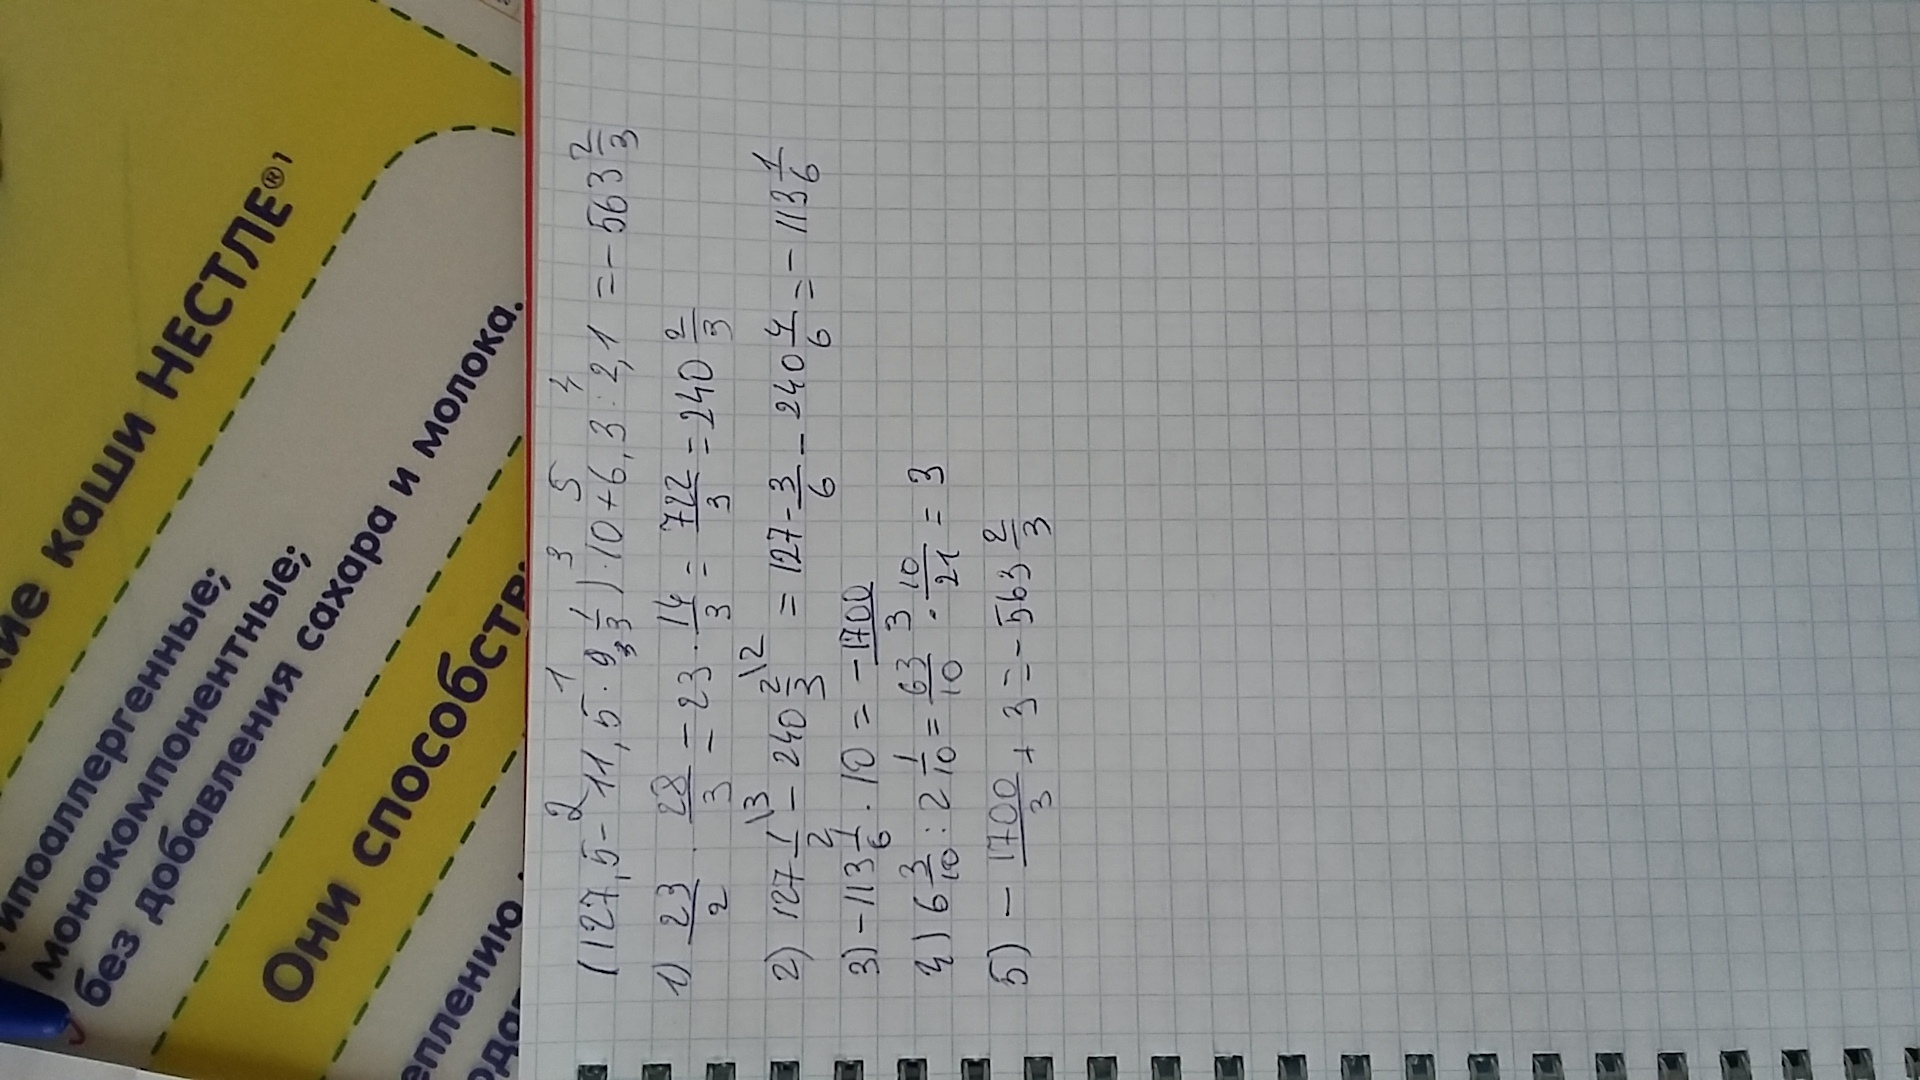 кие каши НЕСТЛЕ®,
ипоаллергенные;
монокомпонентные;
без добавления сахара и молока.
Они способств
еплению
2 1 3 5 4
(127,5-11,5·9 1/3)·10+6,3:2,1=-563 2/3
1) 23/2·28/3=23·14/3=722/3=240 2/3
2) 127 1/2\3-240 2/3\2=127-3/6-240 4/6=-113 1/6
3) -113 1/6·10=-1700
4) 6 3/10:2 1/10=63/10 3·10/21=3
5) -1700/3+3=-563 2/3